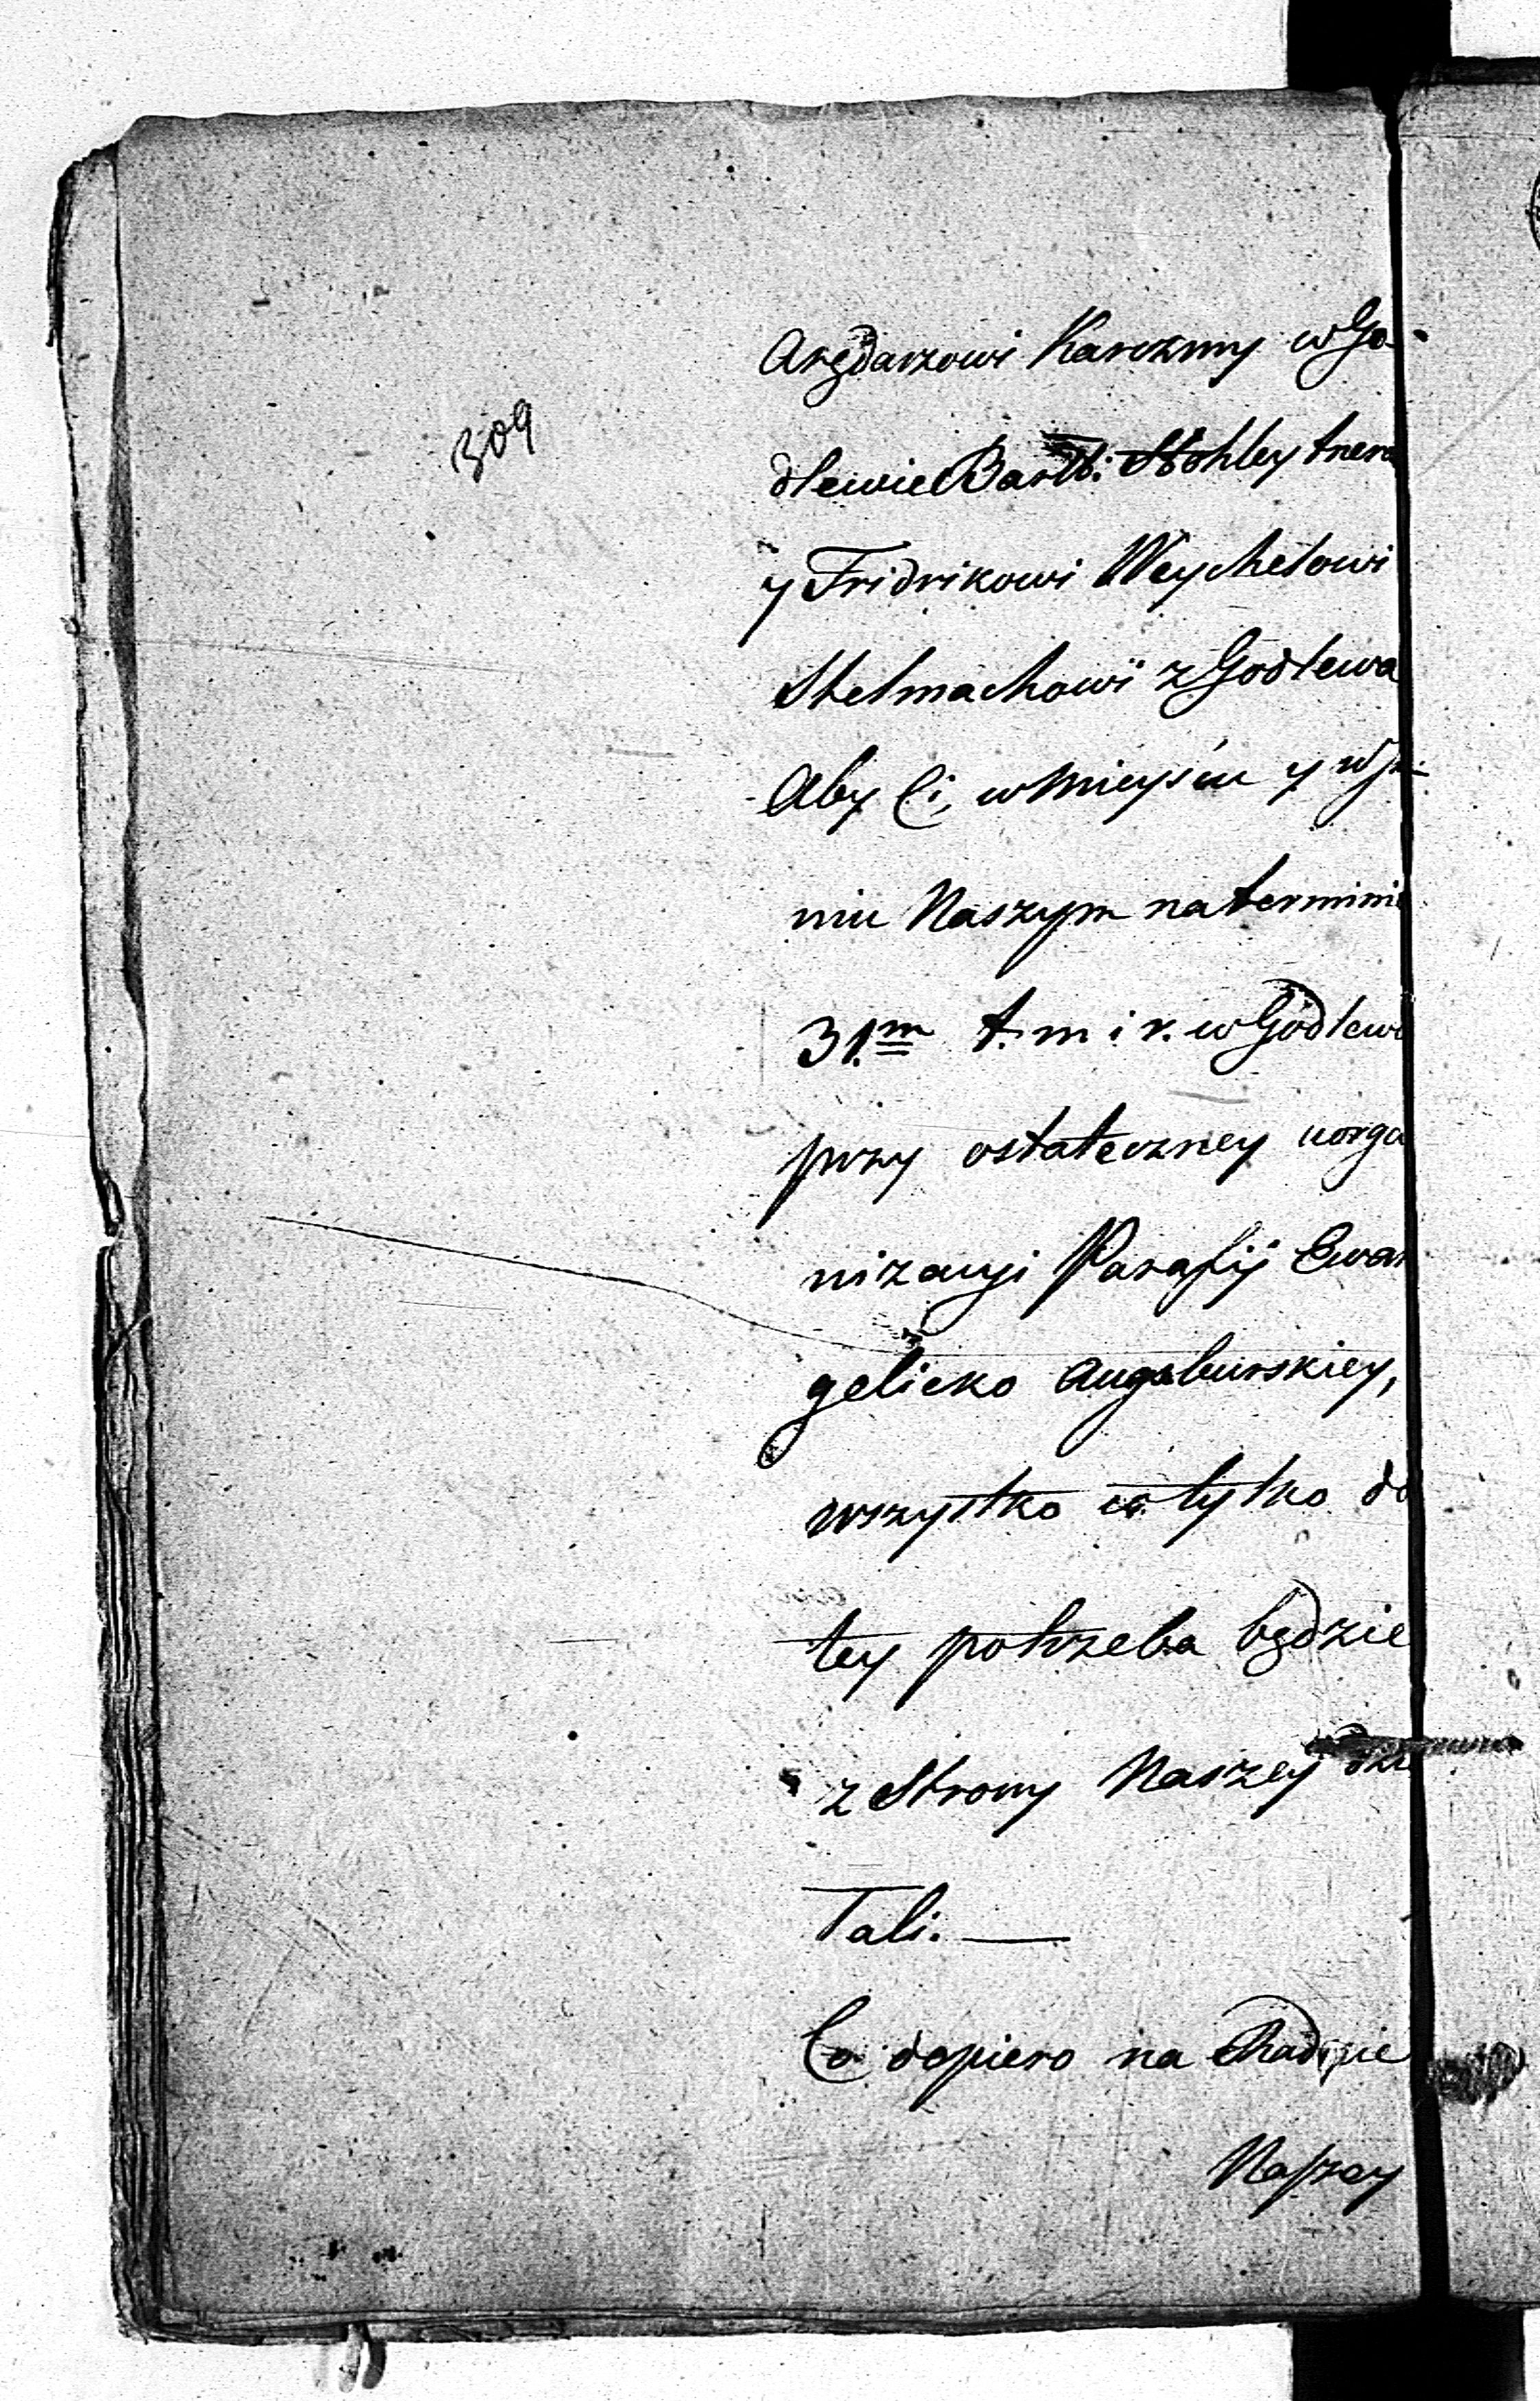 309
Arędarzowi Karczmy w Go-
dlewie Bartł: Stohley
y Fridrikowi Weychelowi
Stelmachowi z Godlewa
Aby Ci, w Mieyscu y w
niu Naszym na termini
31.m t. m i r. w Godlewi
przy ostateczney uorga
nizacyi Parafij Ewan
gelicko Augsburskiey,
wszystko co tylko do
tey potrzeba będzie
z Strony Naszey
Tali. —
Co dopiero na
Naszey